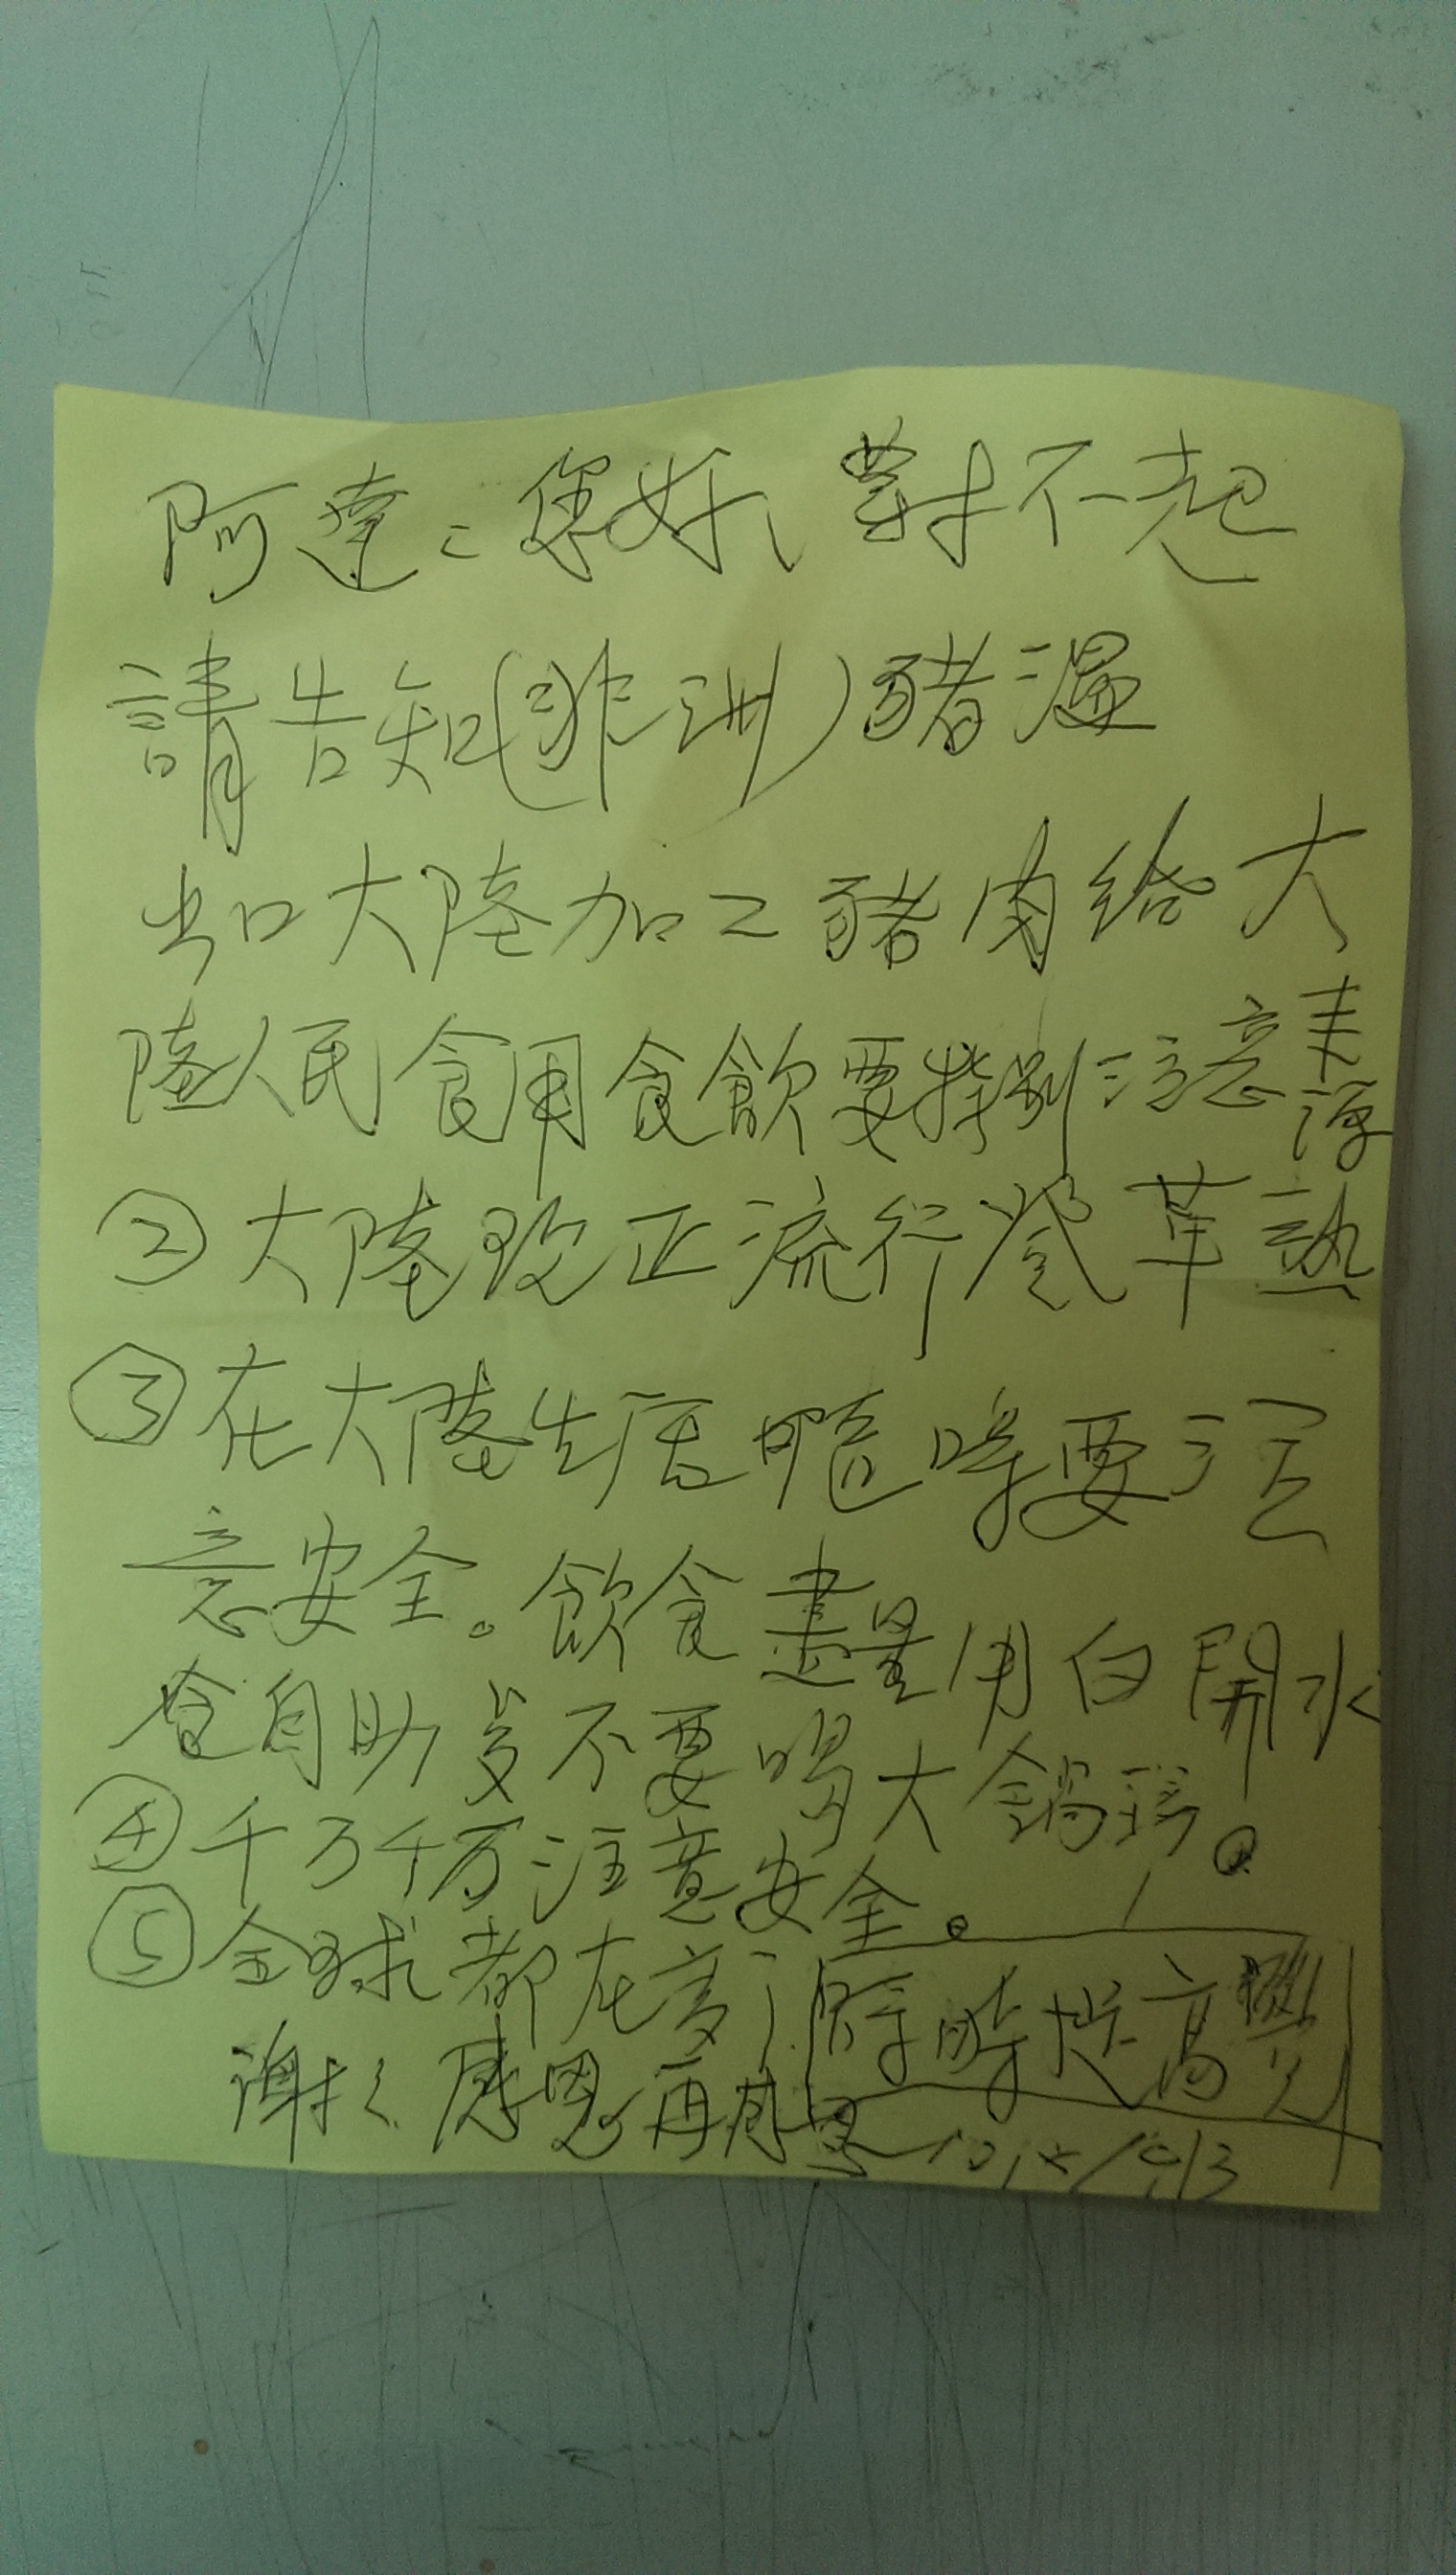 阿達：您好、對不起
請告知(非洲)豬瘟
出口大陸加工豬肉給大
陸人民食用食飲要特別注意
②大陸現正流行登革熱
③在大陸生活隨時要注
意安全。飲食盡量用白開水
食自助 不要喝大鍋
④千万千万注意安全。
⑤全球都在變 時時提高警
謝謝 感恩 再感恩